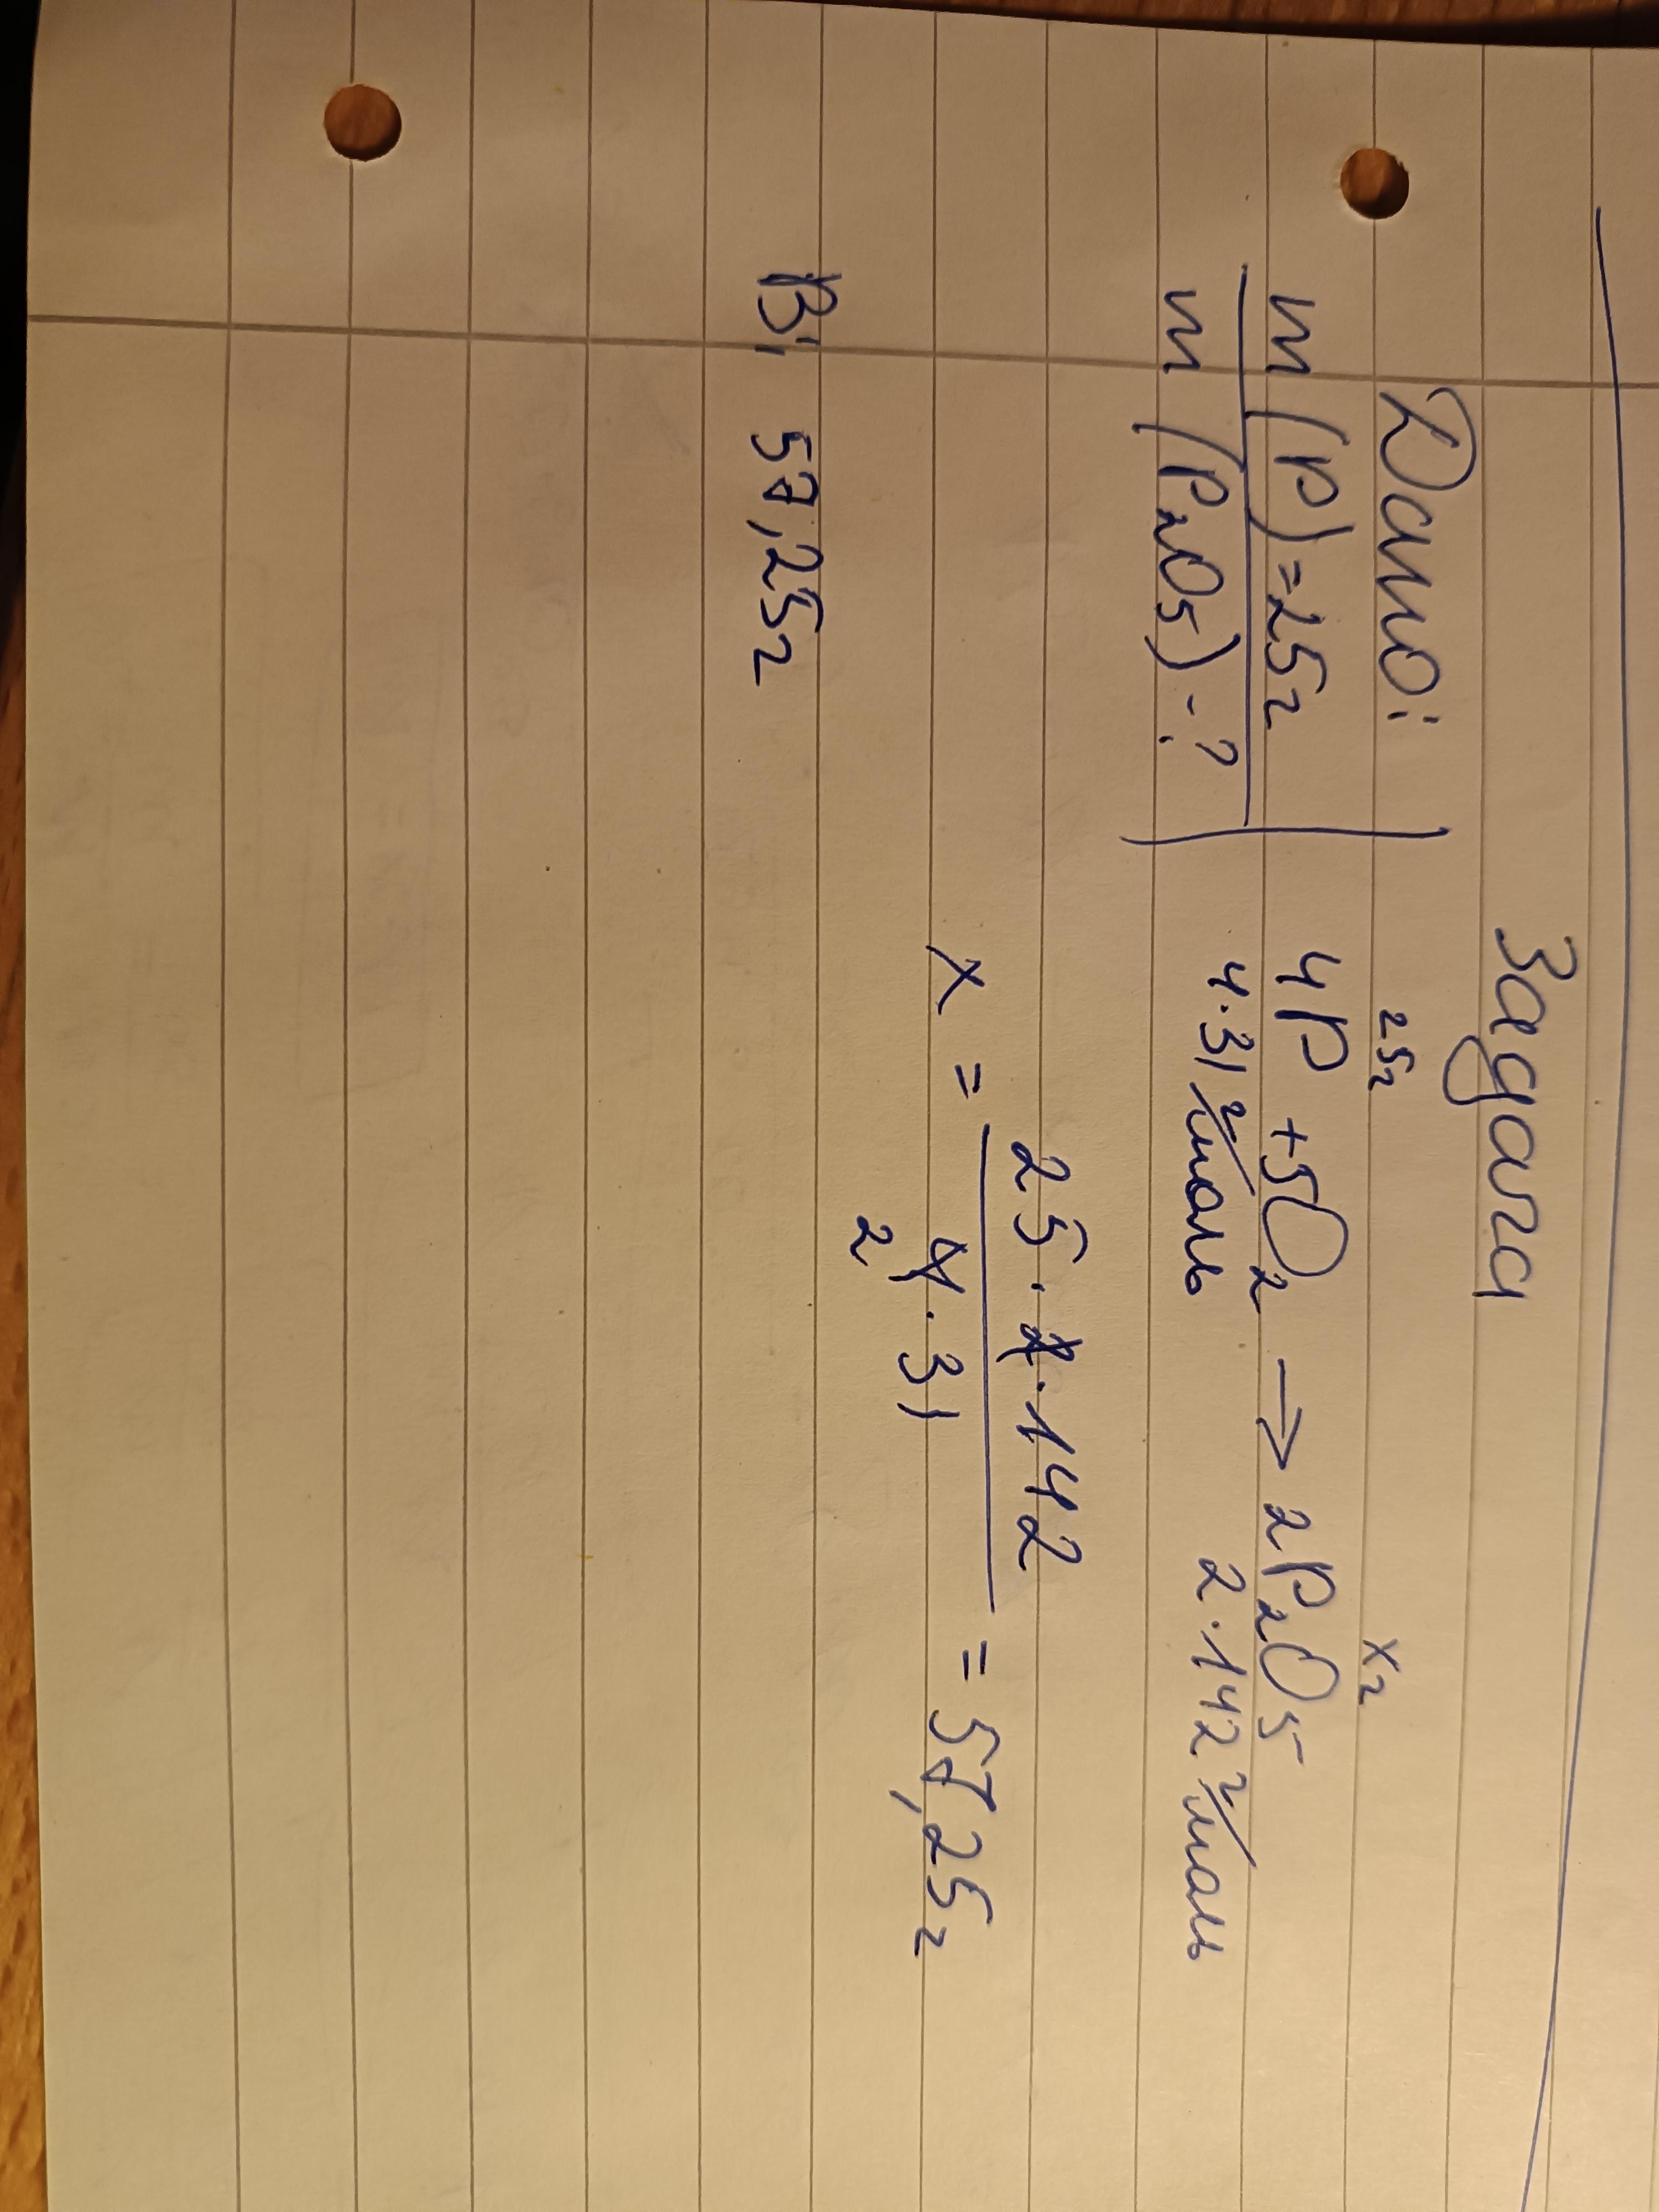 Задача
Дано:
m (P) = 25г
m (P₂O₅) - ?
25г xг
4P + 5O₂ → 2P₂O₅
4·31 г/моль 2·142 г/моль
x = 25·2·142 / 4·31 = 57,25г
2
В: 57,25г